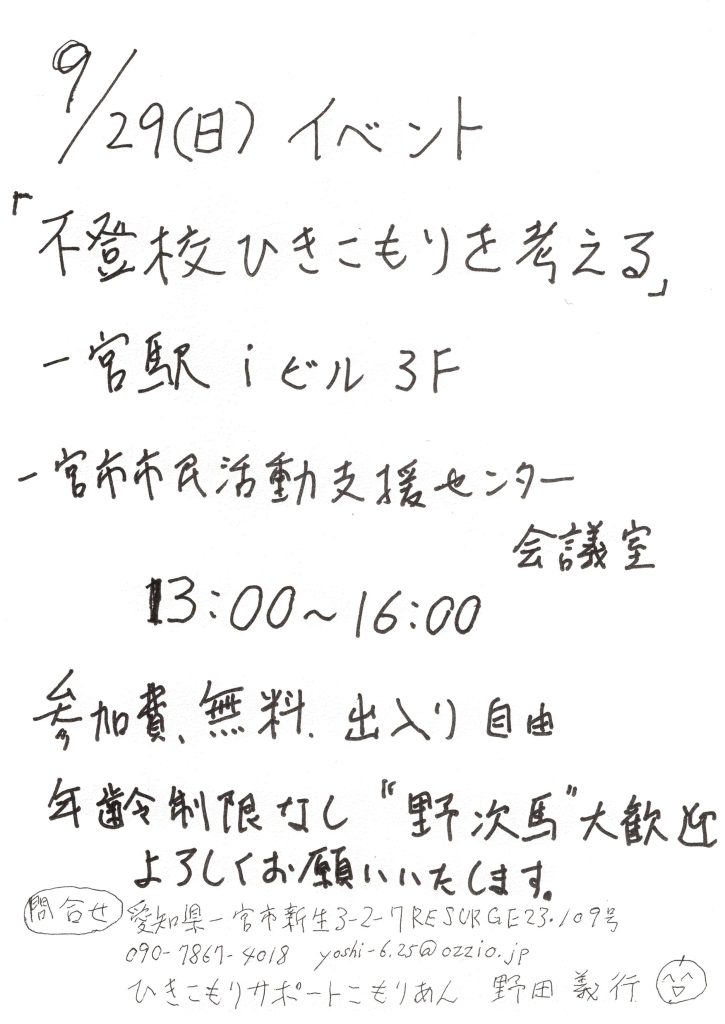 9/29(日) イベント
「不登校ひきこもりを考える」
一宮駅 iビル 3F
一宮市市民活動支援センター
会議室
13:00～16:00
参加費、無料、出入り自由
年齢制限なし "野次馬"大歓迎
よろしくお願いいたします。
問合せ 愛知県一宮市新生3-2-7RESURGE23・109号
090-7867-4018 yoshi-6.25@ozzio.jp
ひきこもりサポートこもりあん 野田義行